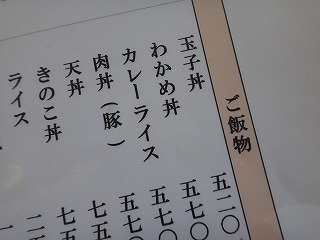 ご飯物
玉子丼 五二〇
わかめ丼 五七〇
カレーライス 五七〇
肉丼（豚） 五七
天丼 七五
きのこ丼 七五
ライス 二